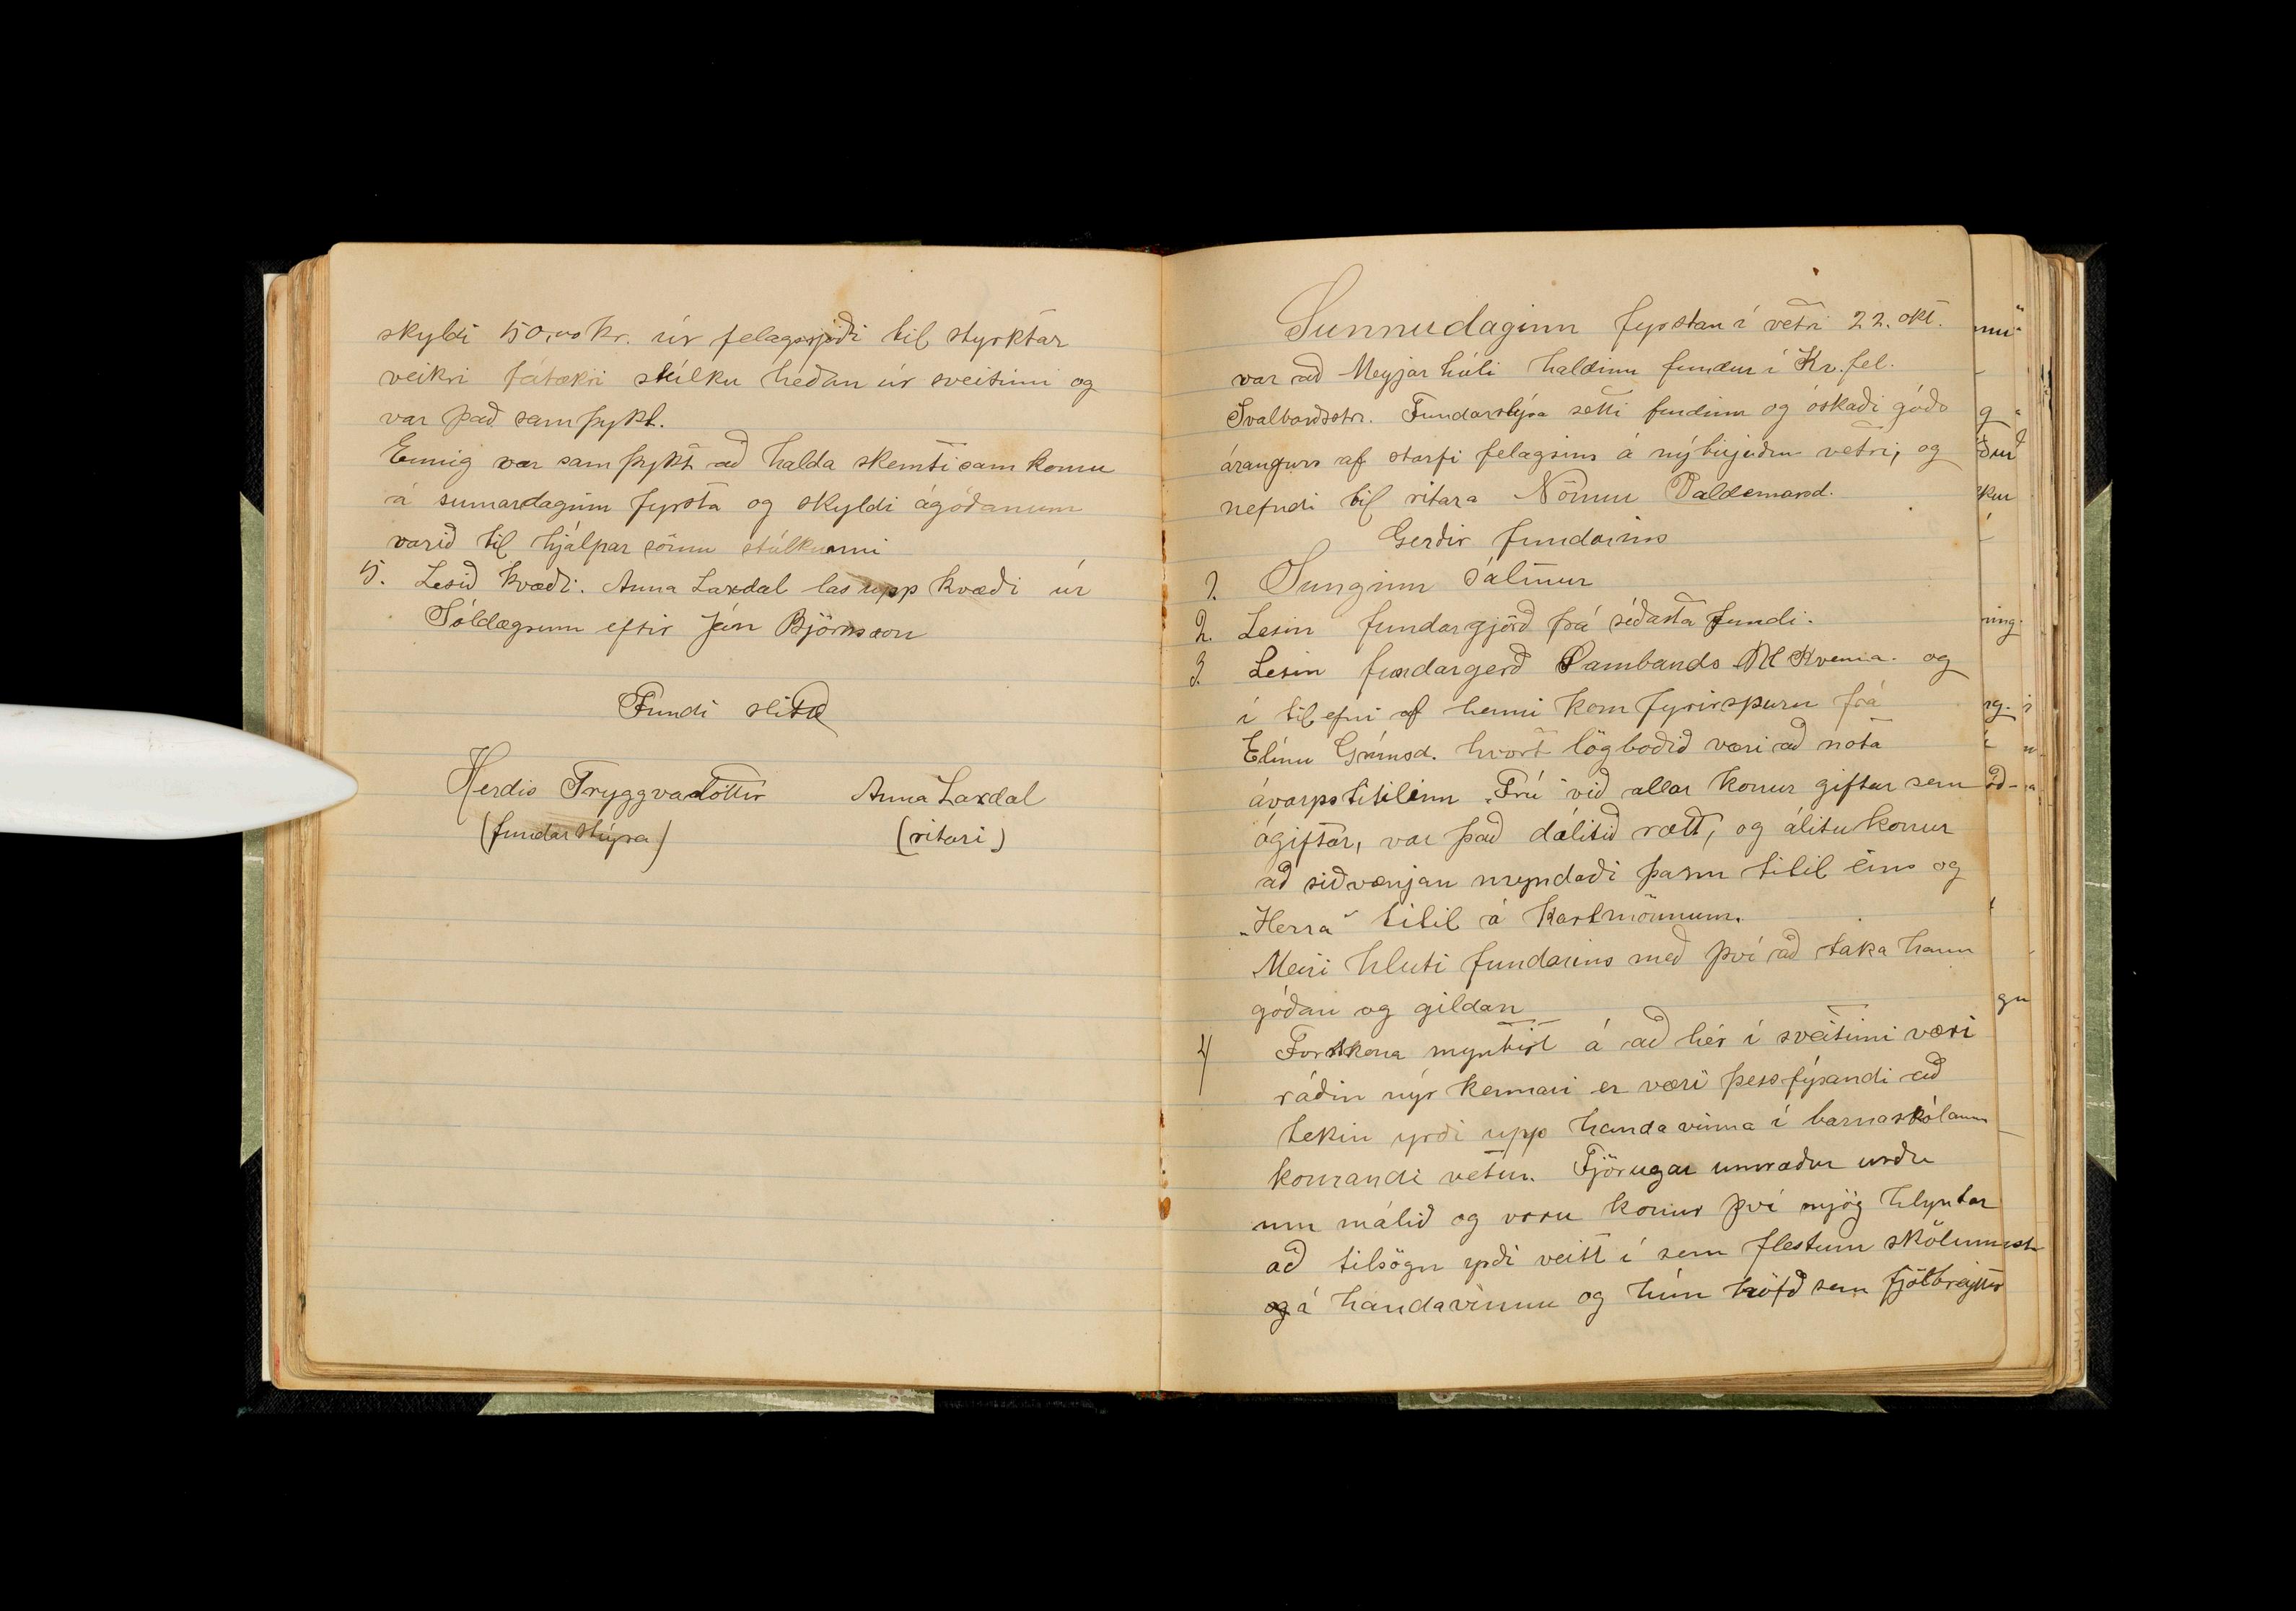 skyldi 50,00 kr. úr felagssjóði til styrktar
veikri fátækri stúlku héðan úr sveitinni og
var það samþykt.
Ennig var samþykt að halda skemtisamkomu
á sumardaginn fyrsta og skyldi ágóðanum
varið til hjálpar sömu stúlkunni
5. Lesið kvæði. Anna Laxdal las upp kvæði úr
Sóldægrum eftir Jón Björnsson
Fundi slitið
Herdis Tryggvadóttir Anna Laxdal
(fundarstýra) (ritari)
Sunnudaginn fyrstan í vetri 22. okt.
var að Meyjarhóli haldinn fundur í Kv.fel.
Svalbarðsstr. Fundarstýra setti fundinn og óskaði góðs
árangurs af starfi felagsins á nýbyrjuðum vetri, og
nefndi til ritara Nönnu Valdemarsd.
Gerðir fundarins
1. Sunginn sálmur
2. Lesin fundargjörð frá síðasta fundi.
3. Lesin fundargerð Sambands Kvenna. og
í tilefni af henni kom fyrirspurn frá
Elínu Grímsd. hvort lögboðið væri að nota
ávarpstitilinn „Frú" við allar konur giftar sem
ógiftar, var það dálitið rætt, og álitu konur
að siðvenjan myndaði þann titil eins og
„Herra" titil á karlmönnum.
Meiri hluti fundarins með því að taka hann
góðan og gildan
4 Forstkona myntist á að hér í sveitinni væri
ráðin nýr kennari er væri þess fýsandi að
tekin yrði upp handavinna í barnaskólanum
komandi vetur. Fjörugar umræður urðu
um málið og voru konur því mjög hlyntar
að tilsögn yrði veitt í sem flestum skólum
á handavinnu og hún höfð sem fjölbreyttust